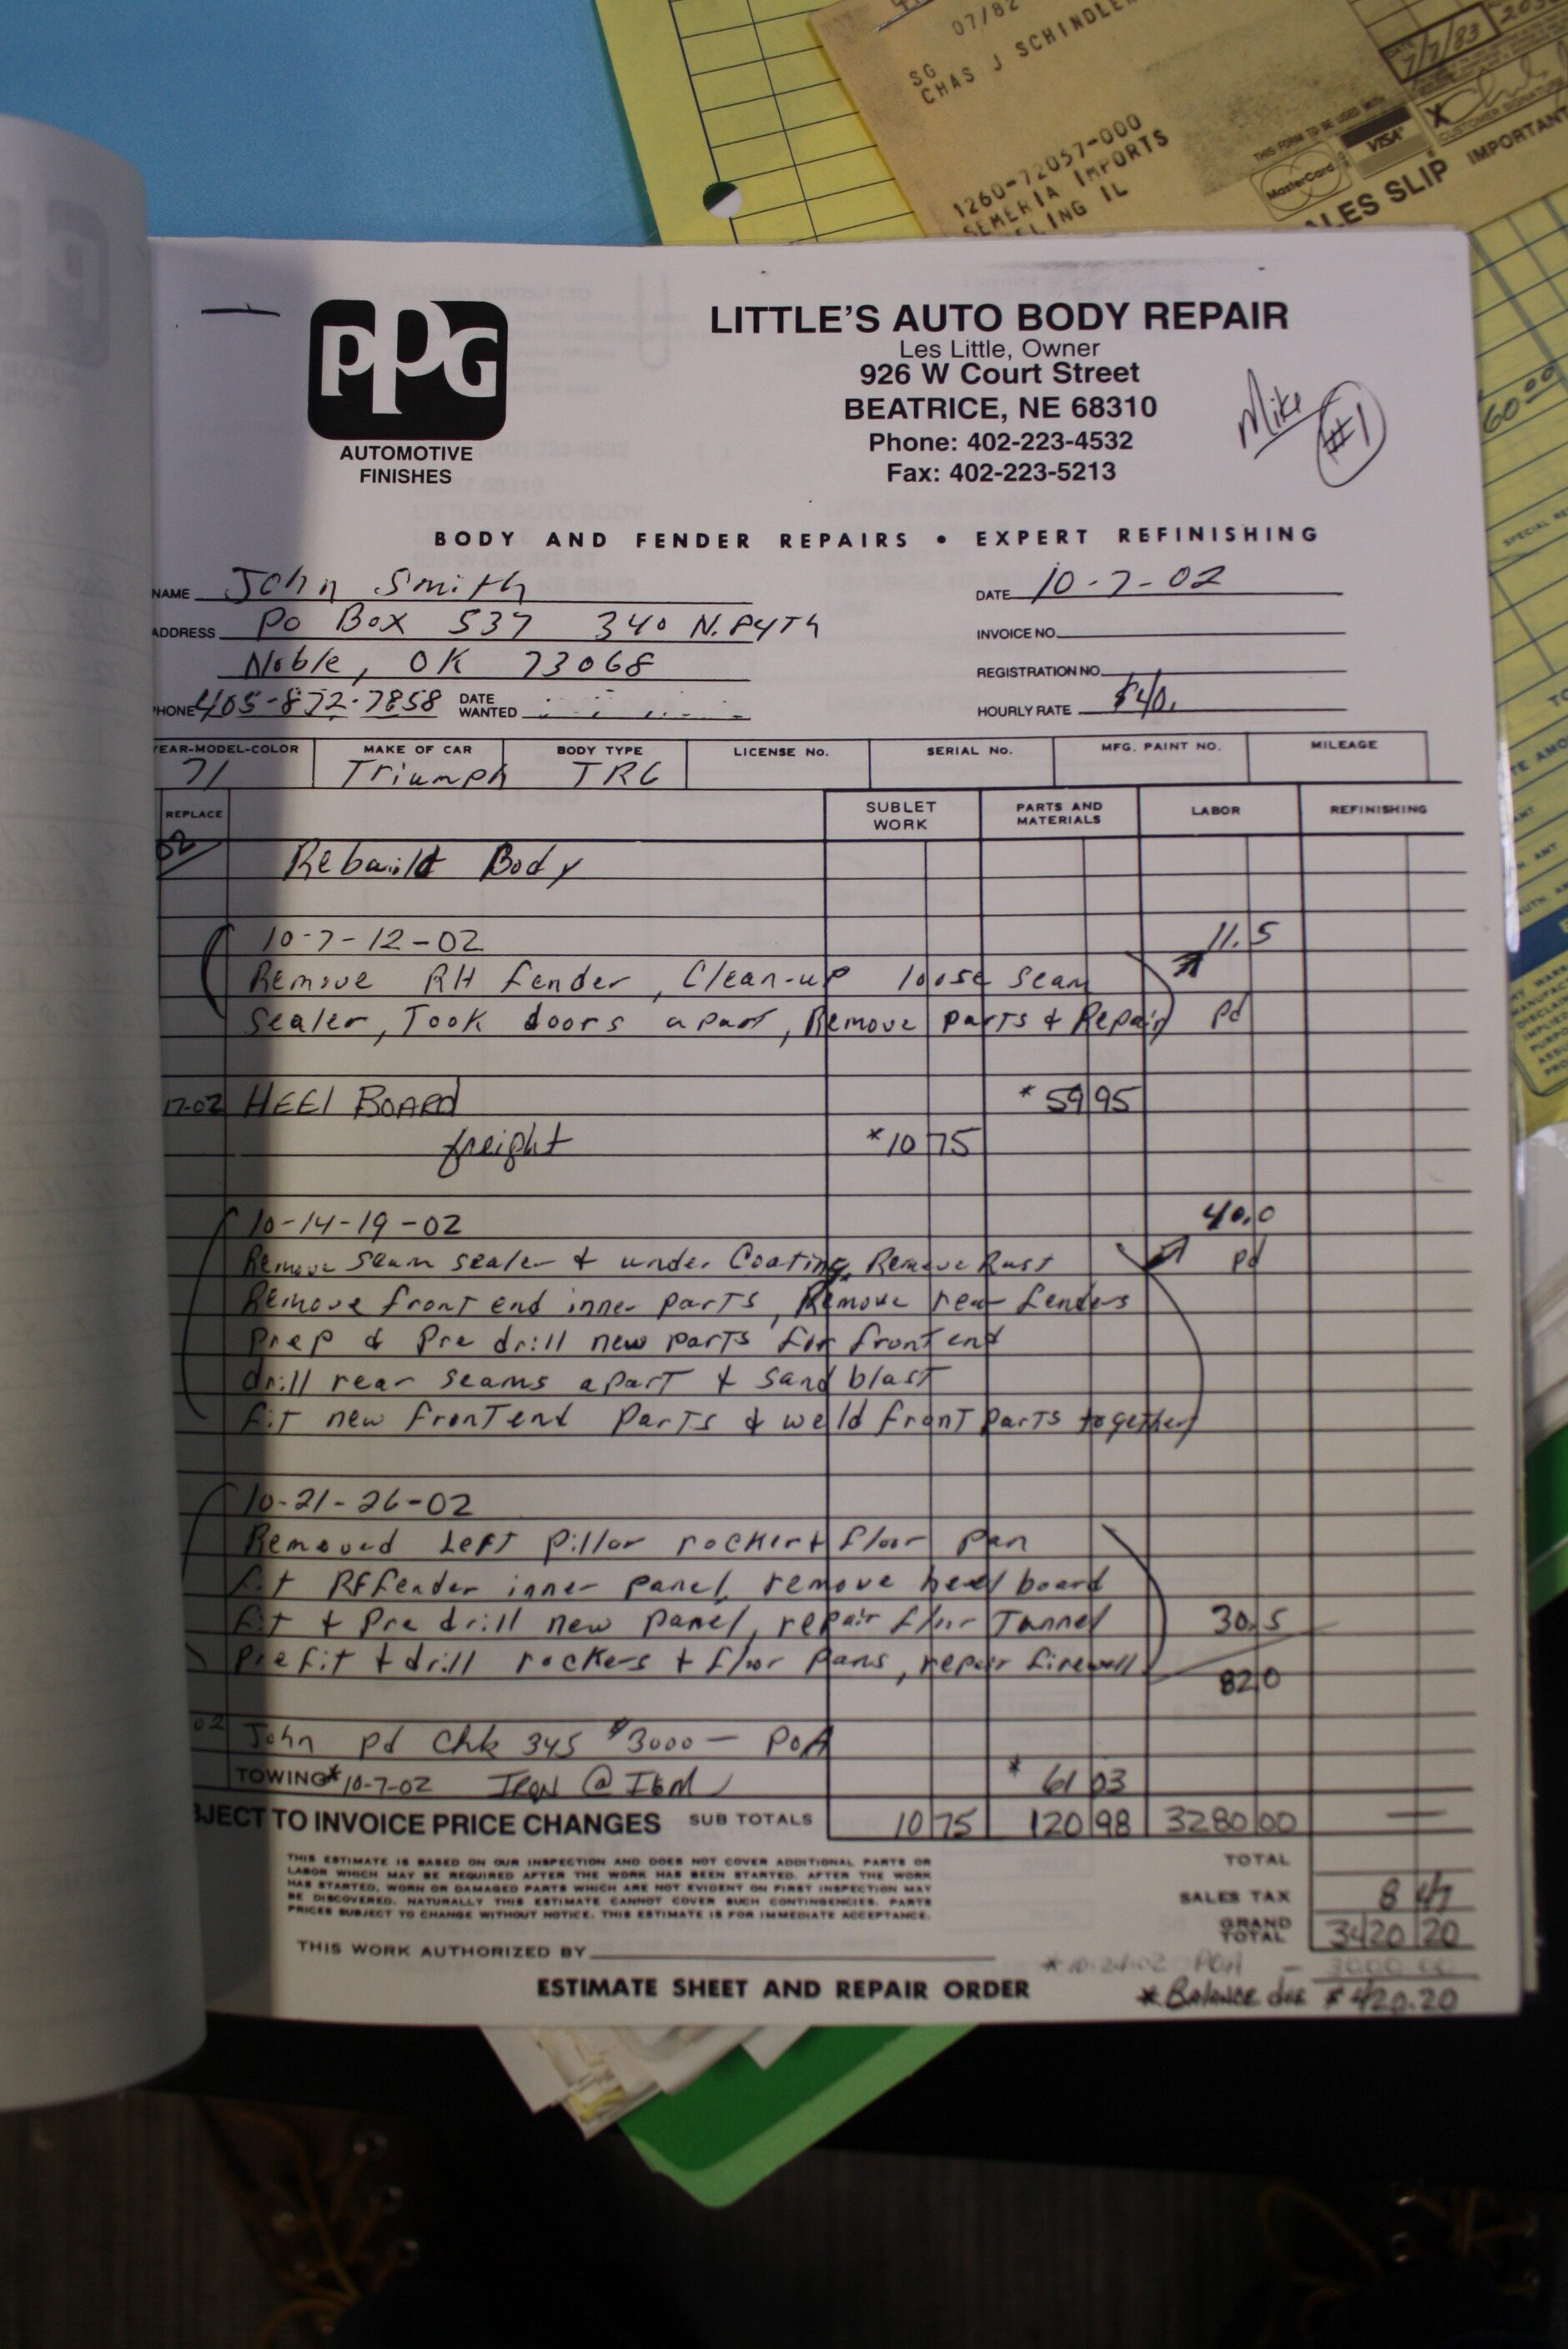 07/82
SG
CHAS J SCHINDLER
7/7/83
1260-72057-000
SEMERIA IMPORTS
ELING IL
THIS FORM TO BE USED WITH
MasterCard
VISA
X
CUSTOMER SIGNATURE
ALES SLIP
IMPORTANT
60 00
PPG
AUTOMOTIVE
FINISHES
LITTLE'S AUTO BODY REPAIR
Les Little, Owner
926 W Court Street
BEATRICE, NE 68310
Phone: 402-223-4532
Fax: 402-223-5213
Mike #1
BODY AND FENDER REPAIRS • EXPERT REFINISHING
NAME John Smith DATE 10-7-02
ADDRESS PO Box 537 340 N. INVOICE NO.
Noble, OK 73068 REGISTRATION NO.
PHONE 405-872-7858 DATE WANTED HOURLY RATE $40.
YEAR-MODEL-COLOR MAKE OF CAR BODY TYPE LICENSE No. SERIAL No. MFG. PAINT NO. MILEAGE
71 Triumph TR6
REPLACE SUBLET WORK PARTS AND MATERIALS LABOR REFINISHING
02 Rebuild Body
10-7-12-02 11.5
Remove RH fender, Clean-up loose seam
Sealer, Took doors apart, Remove parts & Repair pd
17-02 HEEL BOARD *59 95
freight *10 75
10-14-19-02 40.0
Remove seam sealer & under Coating, Remove Rust pd
Remove front end inner parts, Remove rear fenders
Prep & Pre drill new parts for front end
drill rear seams apart & sand blast
fit new front end parts & weld front parts together
10-21-26-02
Removed Left pillor rocker & floor pan
fit RF fender inner panel, remove heel board
fit & Pre drill new panel, repair floor Tunnel 30.5
Prefit & drill rockers & floor pans, repair firewall
82.0
02 John pd Chk 345 $3000 — POA
TOWING *10-7-02 IRON @ I&M *61 03
BJECT TO INVOICE PRICE CHANGES SUB TOTALS 10 75 120 98 3280 00 —
THIS ESTIMATE IS BASED ON OUR INSPECTION AND DOES NOT COVER ADDITIONAL PARTS OR
LABOR WHICH MAY BE REQUIRED AFTER THE WORK HAS BEEN STARTED. AFTER THE WORK
HAS STARTED, WORN OR DAMAGED PARTS WHICH ARE NOT EVIDENT ON FIRST INSPECTION MAY
BE DISCOVERED. NATURALLY THIS ESTIMATE CANNOT COVER SUCH CONTINGENCIES. PARTS
PRICES SUBJECT TO CHANGE WITHOUT NOTICE. THIS ESTIMATE IS FOR IMMEDIATE ACCEPTANCE.
TOTAL
SALES TAX 8 47
GRAND TOTAL 3420 20
THIS WORK AUTHORIZED BY
POA – 3000.00
ESTIMATE SHEET AND REPAIR ORDER
* Balance due $420.20